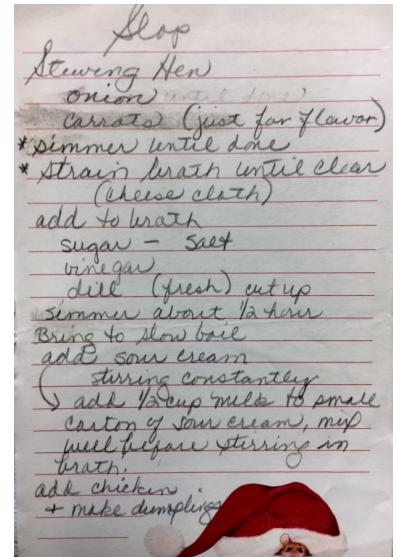 Slop
Stewing Hen
onion until done
carrats (just for flavor)
* simmer until done
* strain brath until clear
(cheese cloth)
add to brath
sugar - salt
vinegar
dill (fresh) cut up
simmer about 1/2 hour
Bring to slow boil
add sour cream
stirring constantly
add 1/2 cup milk to small
carton of sour cream, mix
well before stirring in
brath.
add chicken
+ make dumplings